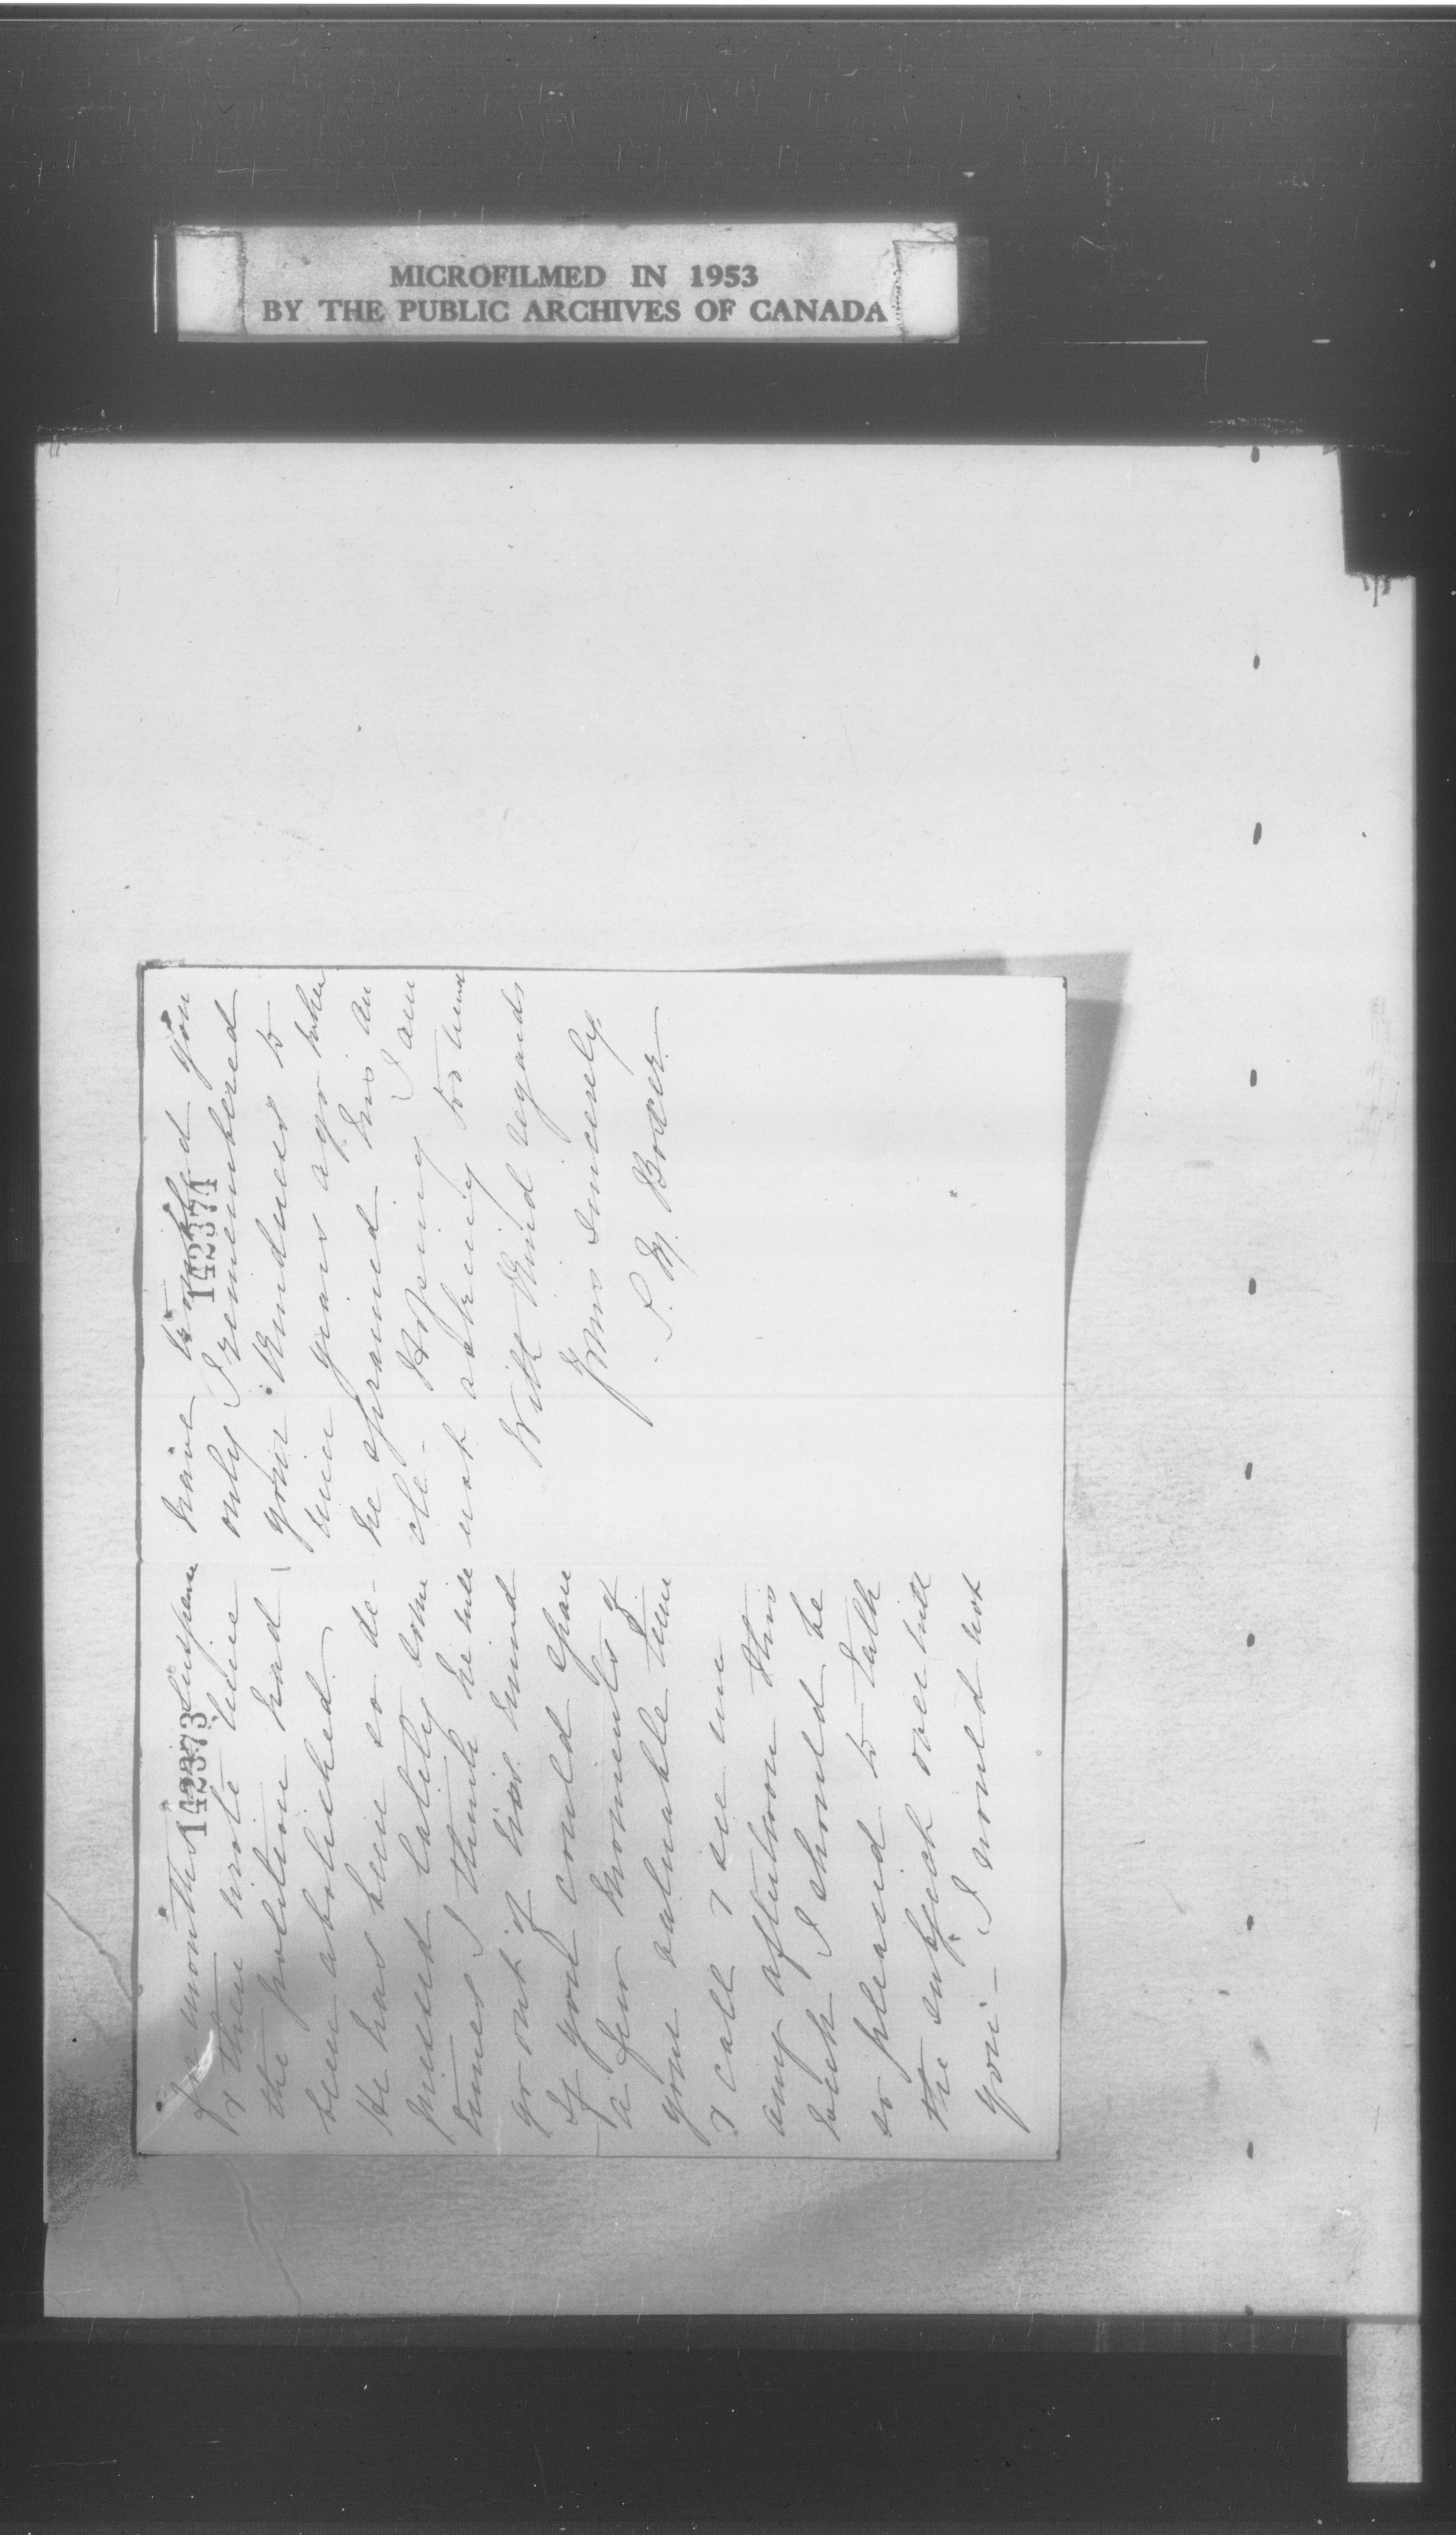 MICROFILMED IN 1953
BY THE PUBLIC ARCHIVES OF CANADA
142373
of months suspense
& then wrote him
the position had
been abolished.
He has been so de-
pressed lately some
times I think he will
go out of his mind
If you could spare
a few moments of
your valuable time
& call & see me
any afternoon this
week I should be
so pleased to talk
the subject over with
you - I would not
142374
have troubled you
only I remembered
your kindness to
him years ago when
he sprained his an
cle - Hoping I am
not asking too much
With kind regards
Yours sincerely
S. M.